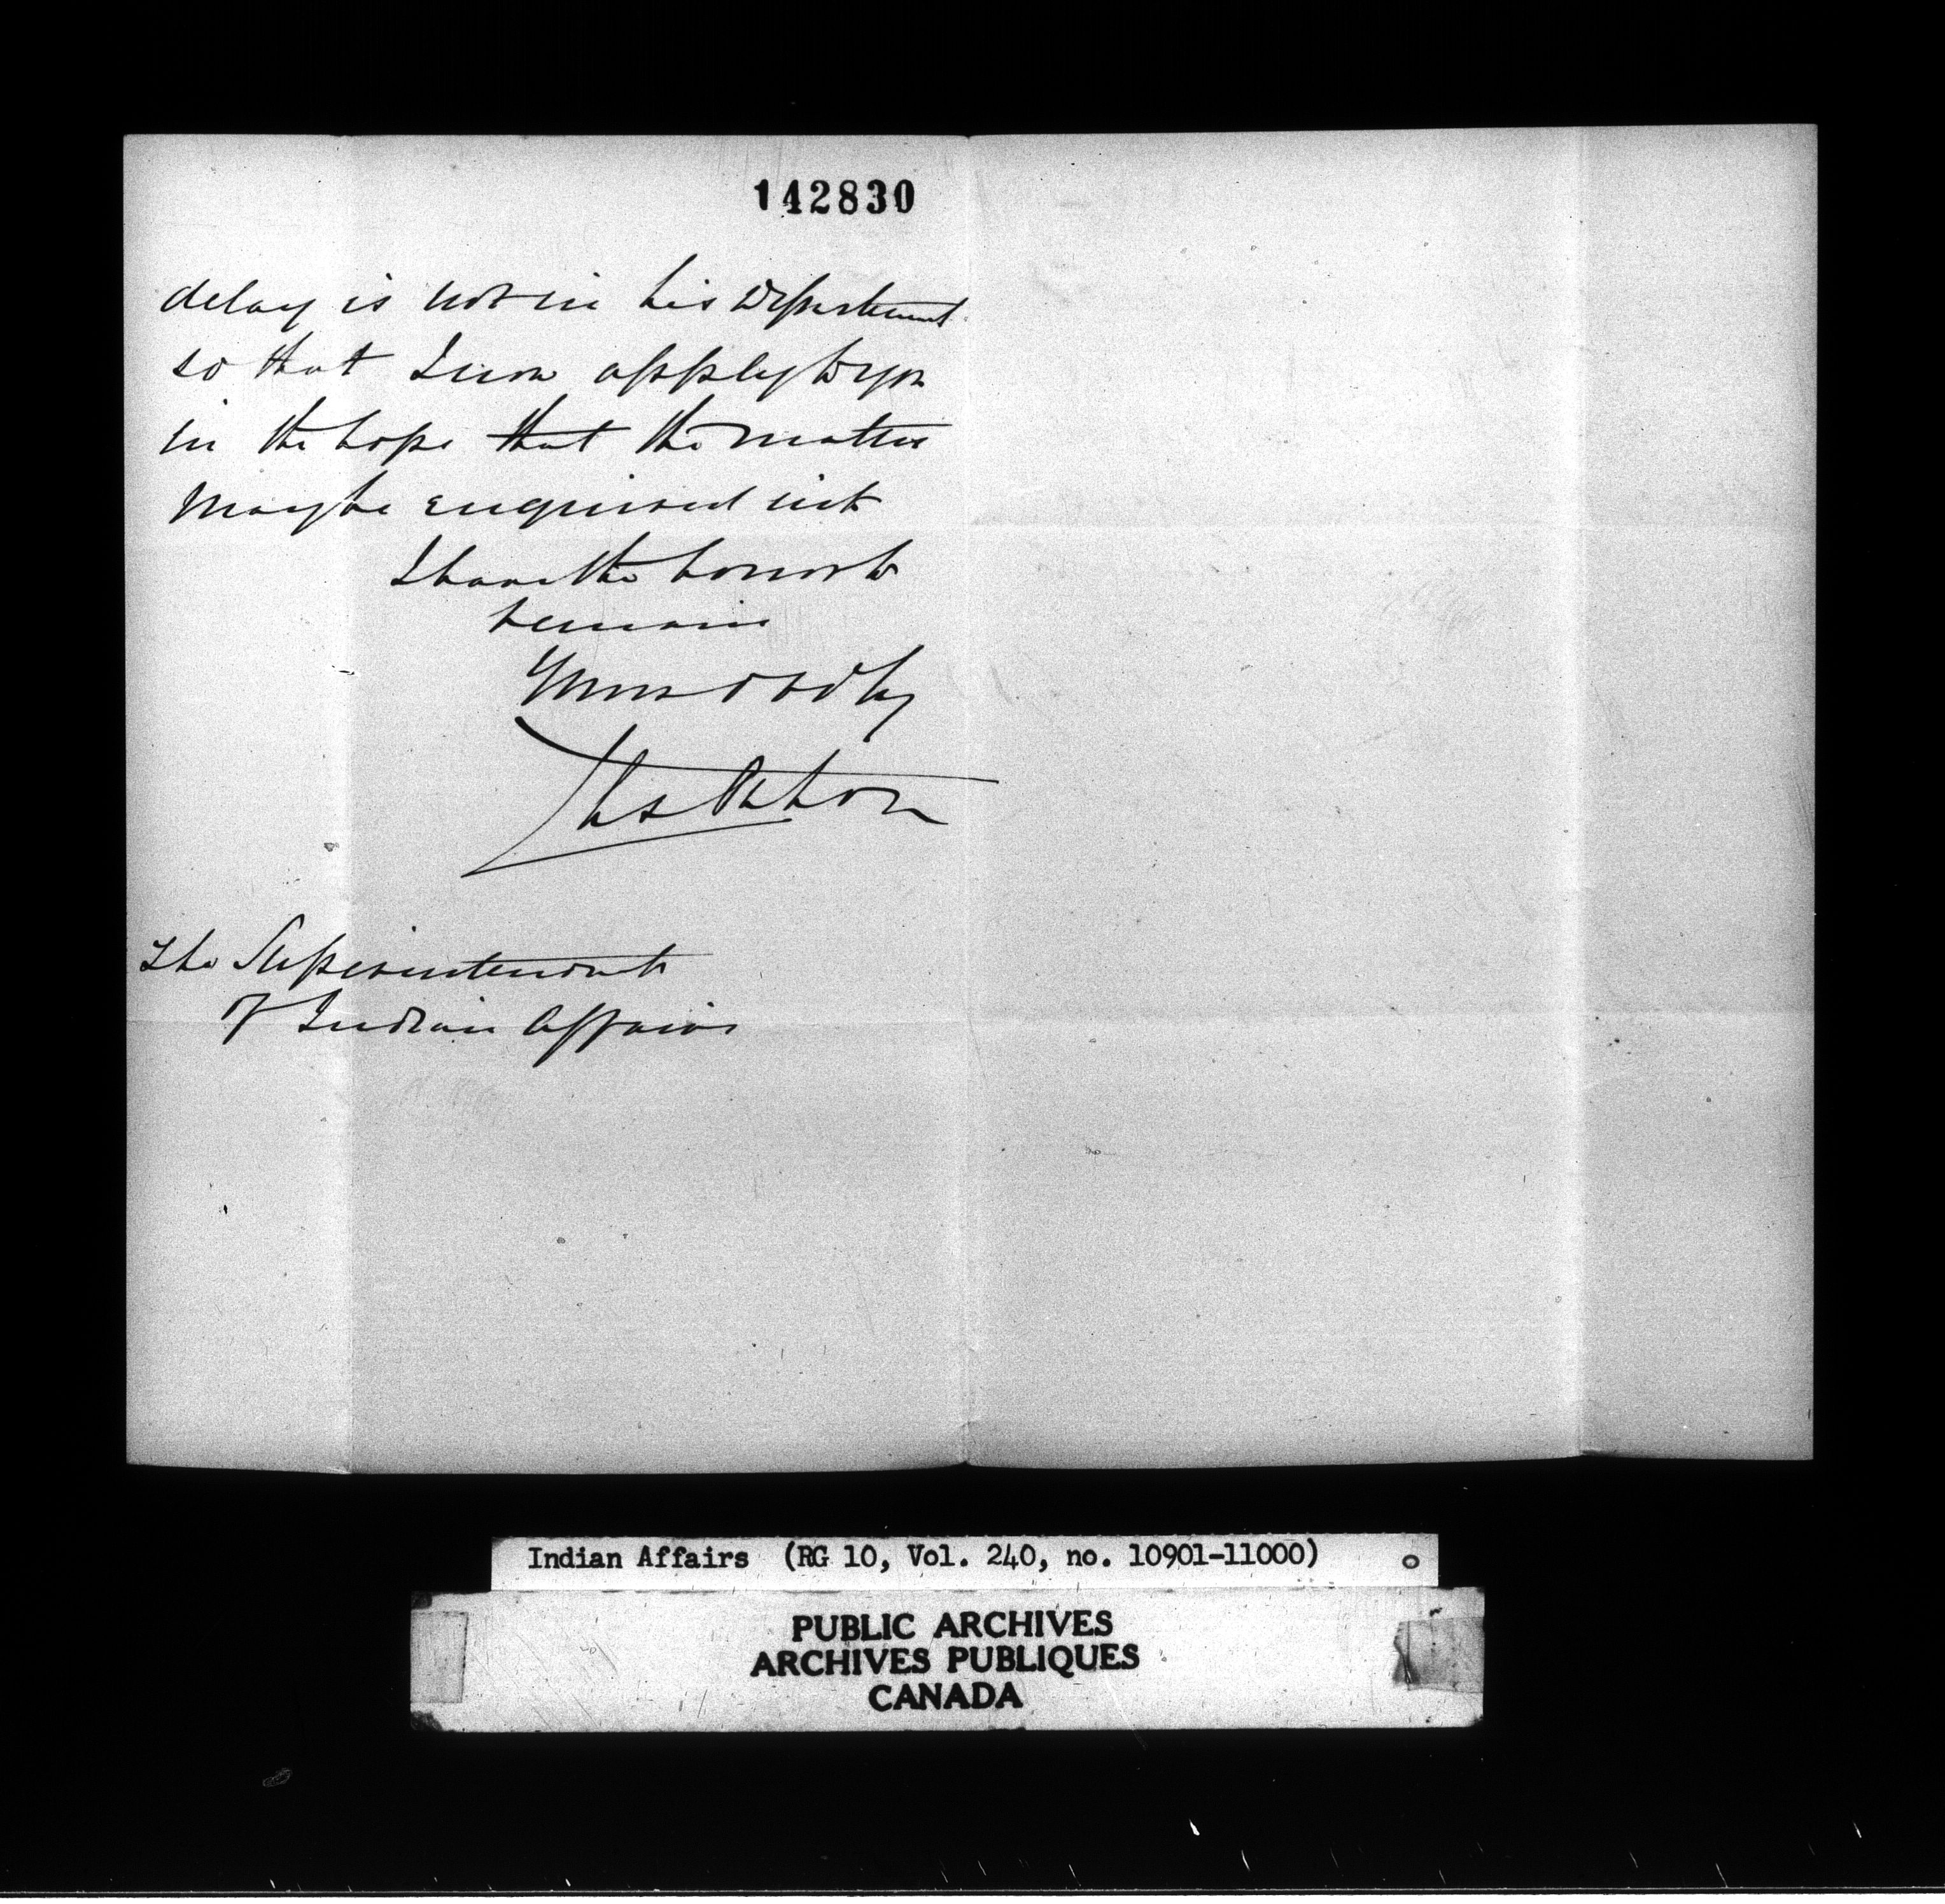 142830
delay is not in his Department
so that I now apply to you
in the hope that the matter
may be enquired into
I have the honor to
remain
Yours
The Superintendent
of Indian Affairs
Indian Affairs (RG 10, Vol. 240, no. 10901-11000)
PUBLIC ARCHIVES
ARCHIVES PUBLIQUES
CANADA